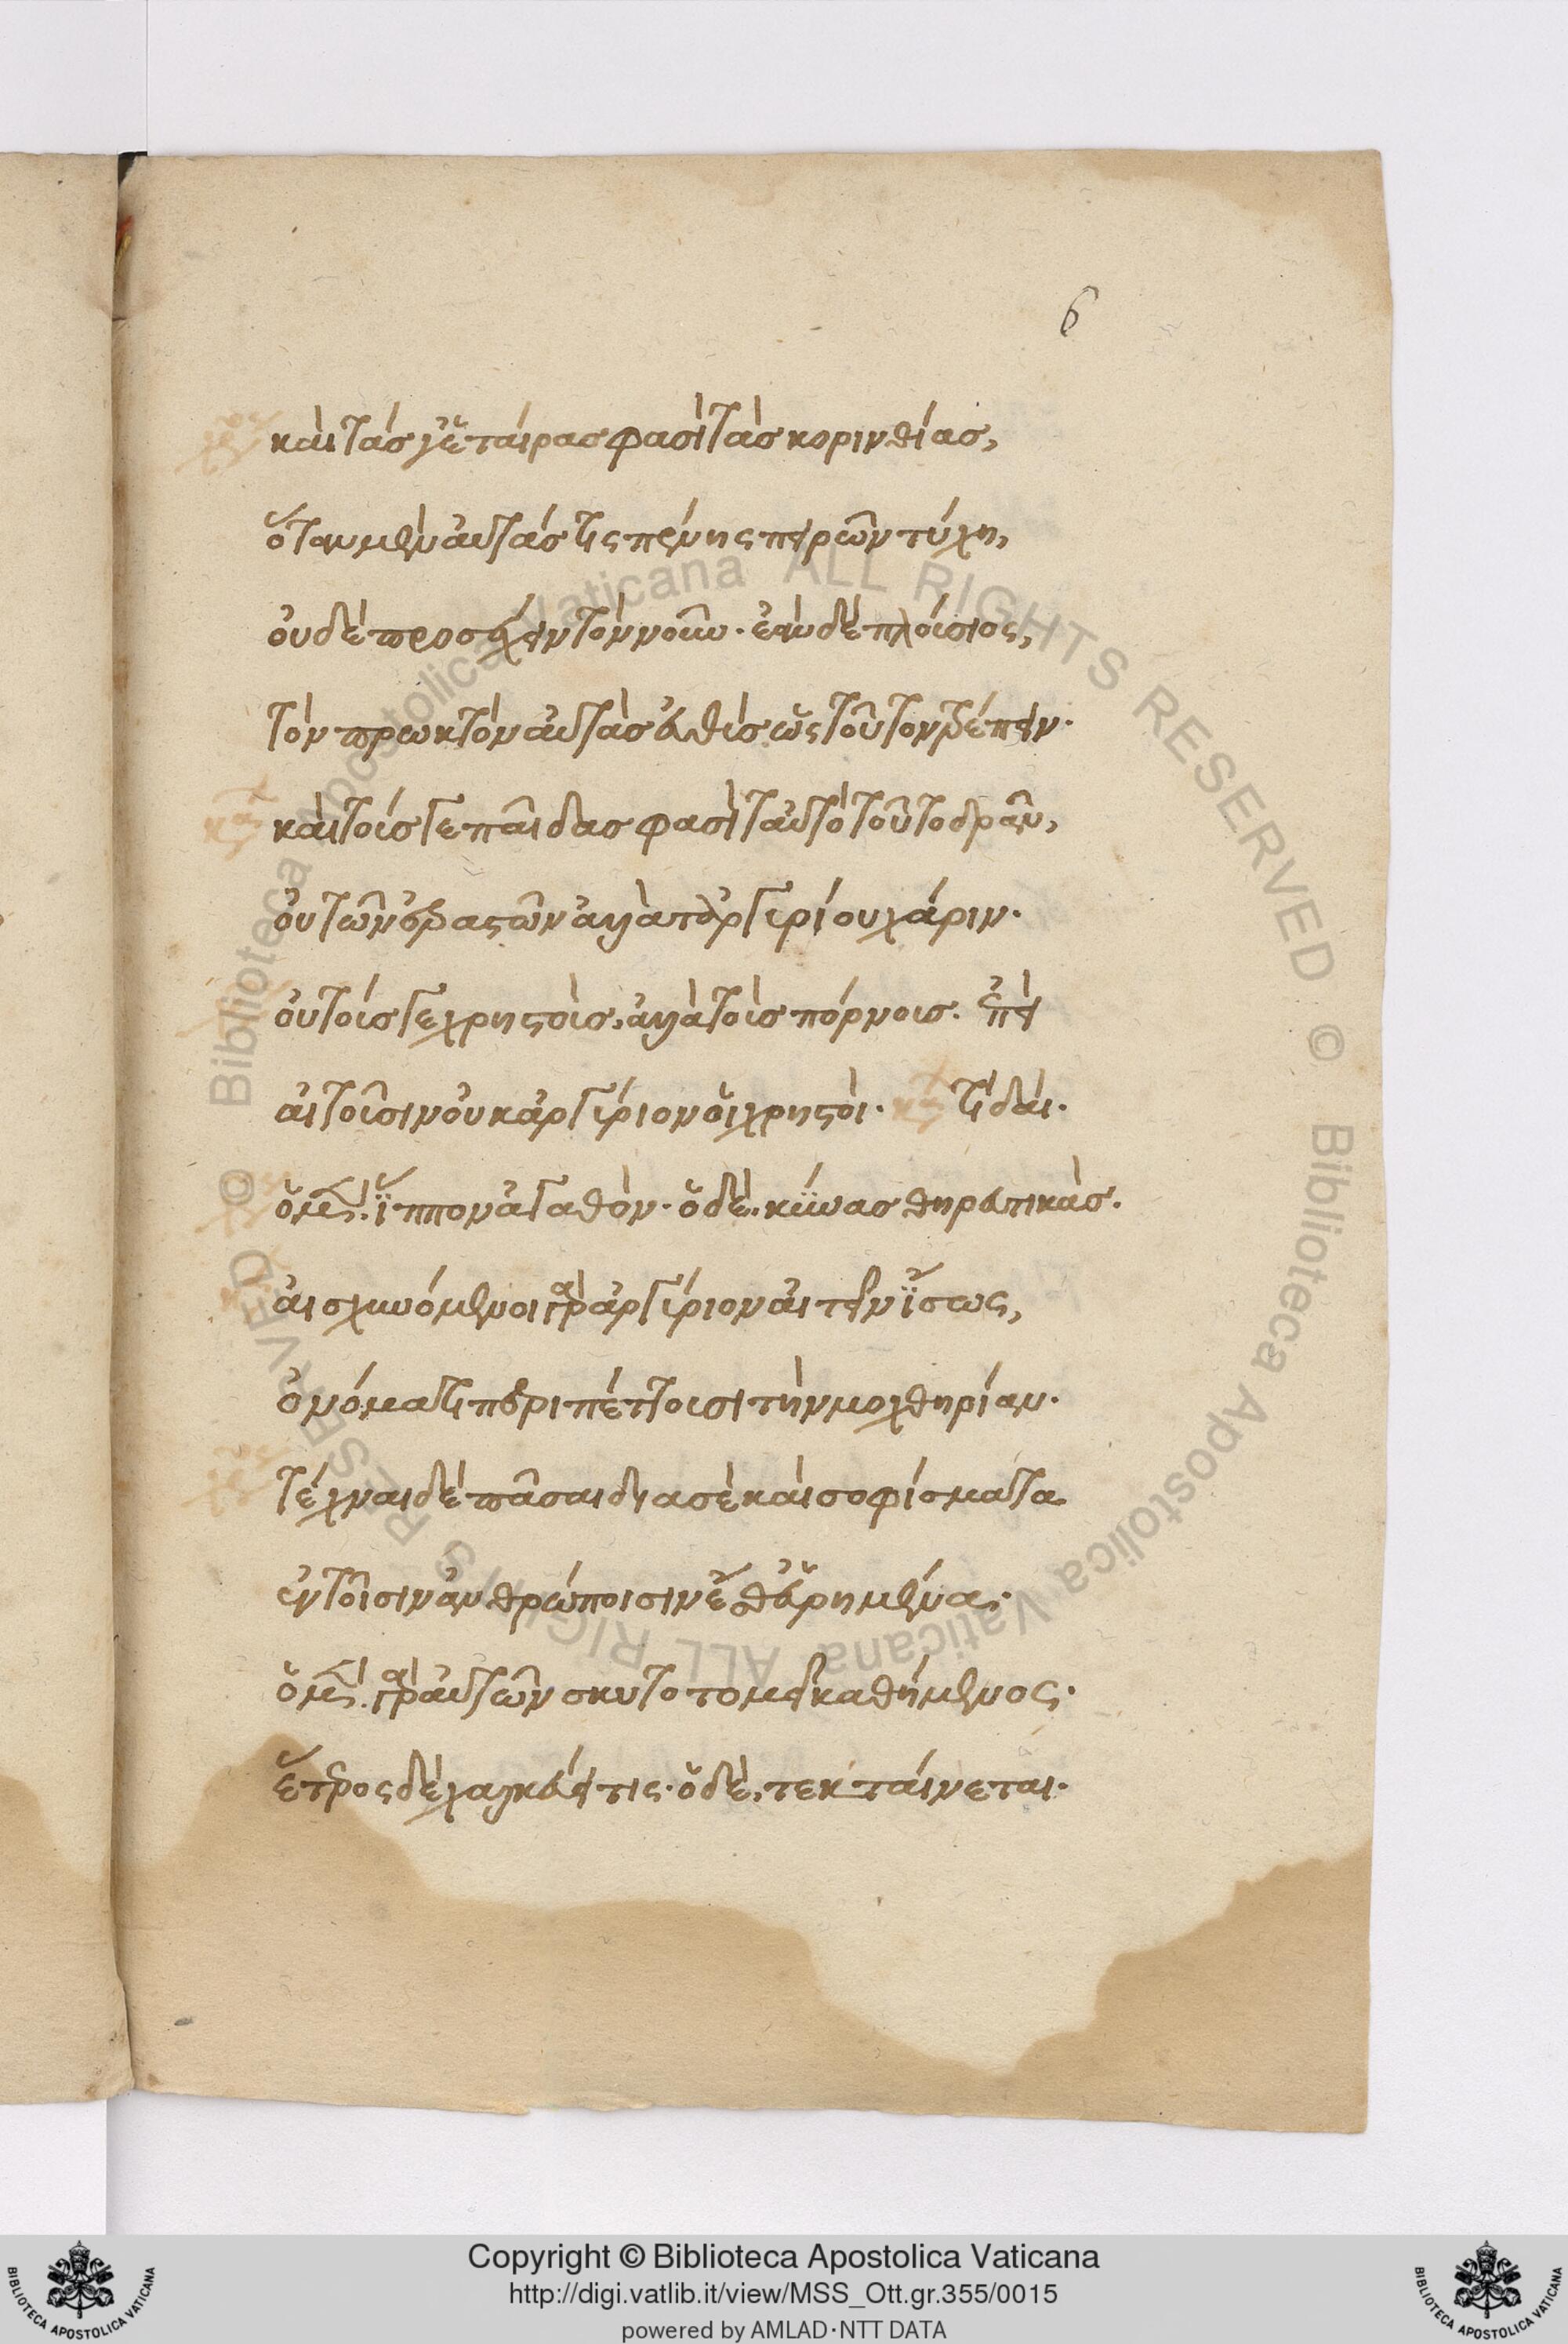 6
καὶ τάς γ᾽ ἑταίρας φασὶ τὰς κορινθίας,
ὅταν μὲν αὐτάς τις πένης πειρῶν τύχη,
οὐδὲ προσέχειν τὸν νοῦν. ἐὰν δὲ πλούσιος,
τὸν πρωκτὸν αὐτὰς εὐθὺς ὡς τοῦτον τρέπειν.
καὶ τούς γε παῖδας φασὶ ταὐτὸ τοῦτο δρᾶν,
οὐ τῶν ἐραστῶν ἀλλὰ τἀργυρίου χάριν.
οὐ τούς γε χρηστοὺς, ἀλλὰ τοὺς πόρνους. ἐπεὶ
αἰτοῦσιν οὐκ ἀργύριον οἱ χρηστοί. τί δαί.
ὁ μὲν. ἵππον ἀγαθὸν. ὁ δὲ. κύνας θηρευτικὰς.
αἰσχυνόμενοι γὰρ ἀργύριον αἰτεῖν ἴσως,
ὀνόματι περιπέττουσι τὴν μοχθηρίαν.
τέχναι δὲ πᾶσαι διὰ σὲ καὶ σοφίσματα
ἐν τοῖσιν ἀνθρώποισιν ἔσθ᾽ εὑρημένα.
ὁ μὲν. γὰρ αὐτῶν σκυτοτομεῖ καθήμενος.
ἕτερος δὲ χαλκεύει τις. ὁ δὲ, τεκταίνεται.
Copyright © Biblioteca Apostolica Vaticana
http://digi.vatlib.it/view/MSS_Ott.gr.355/0015
powered by AMLAD·NTT DATA